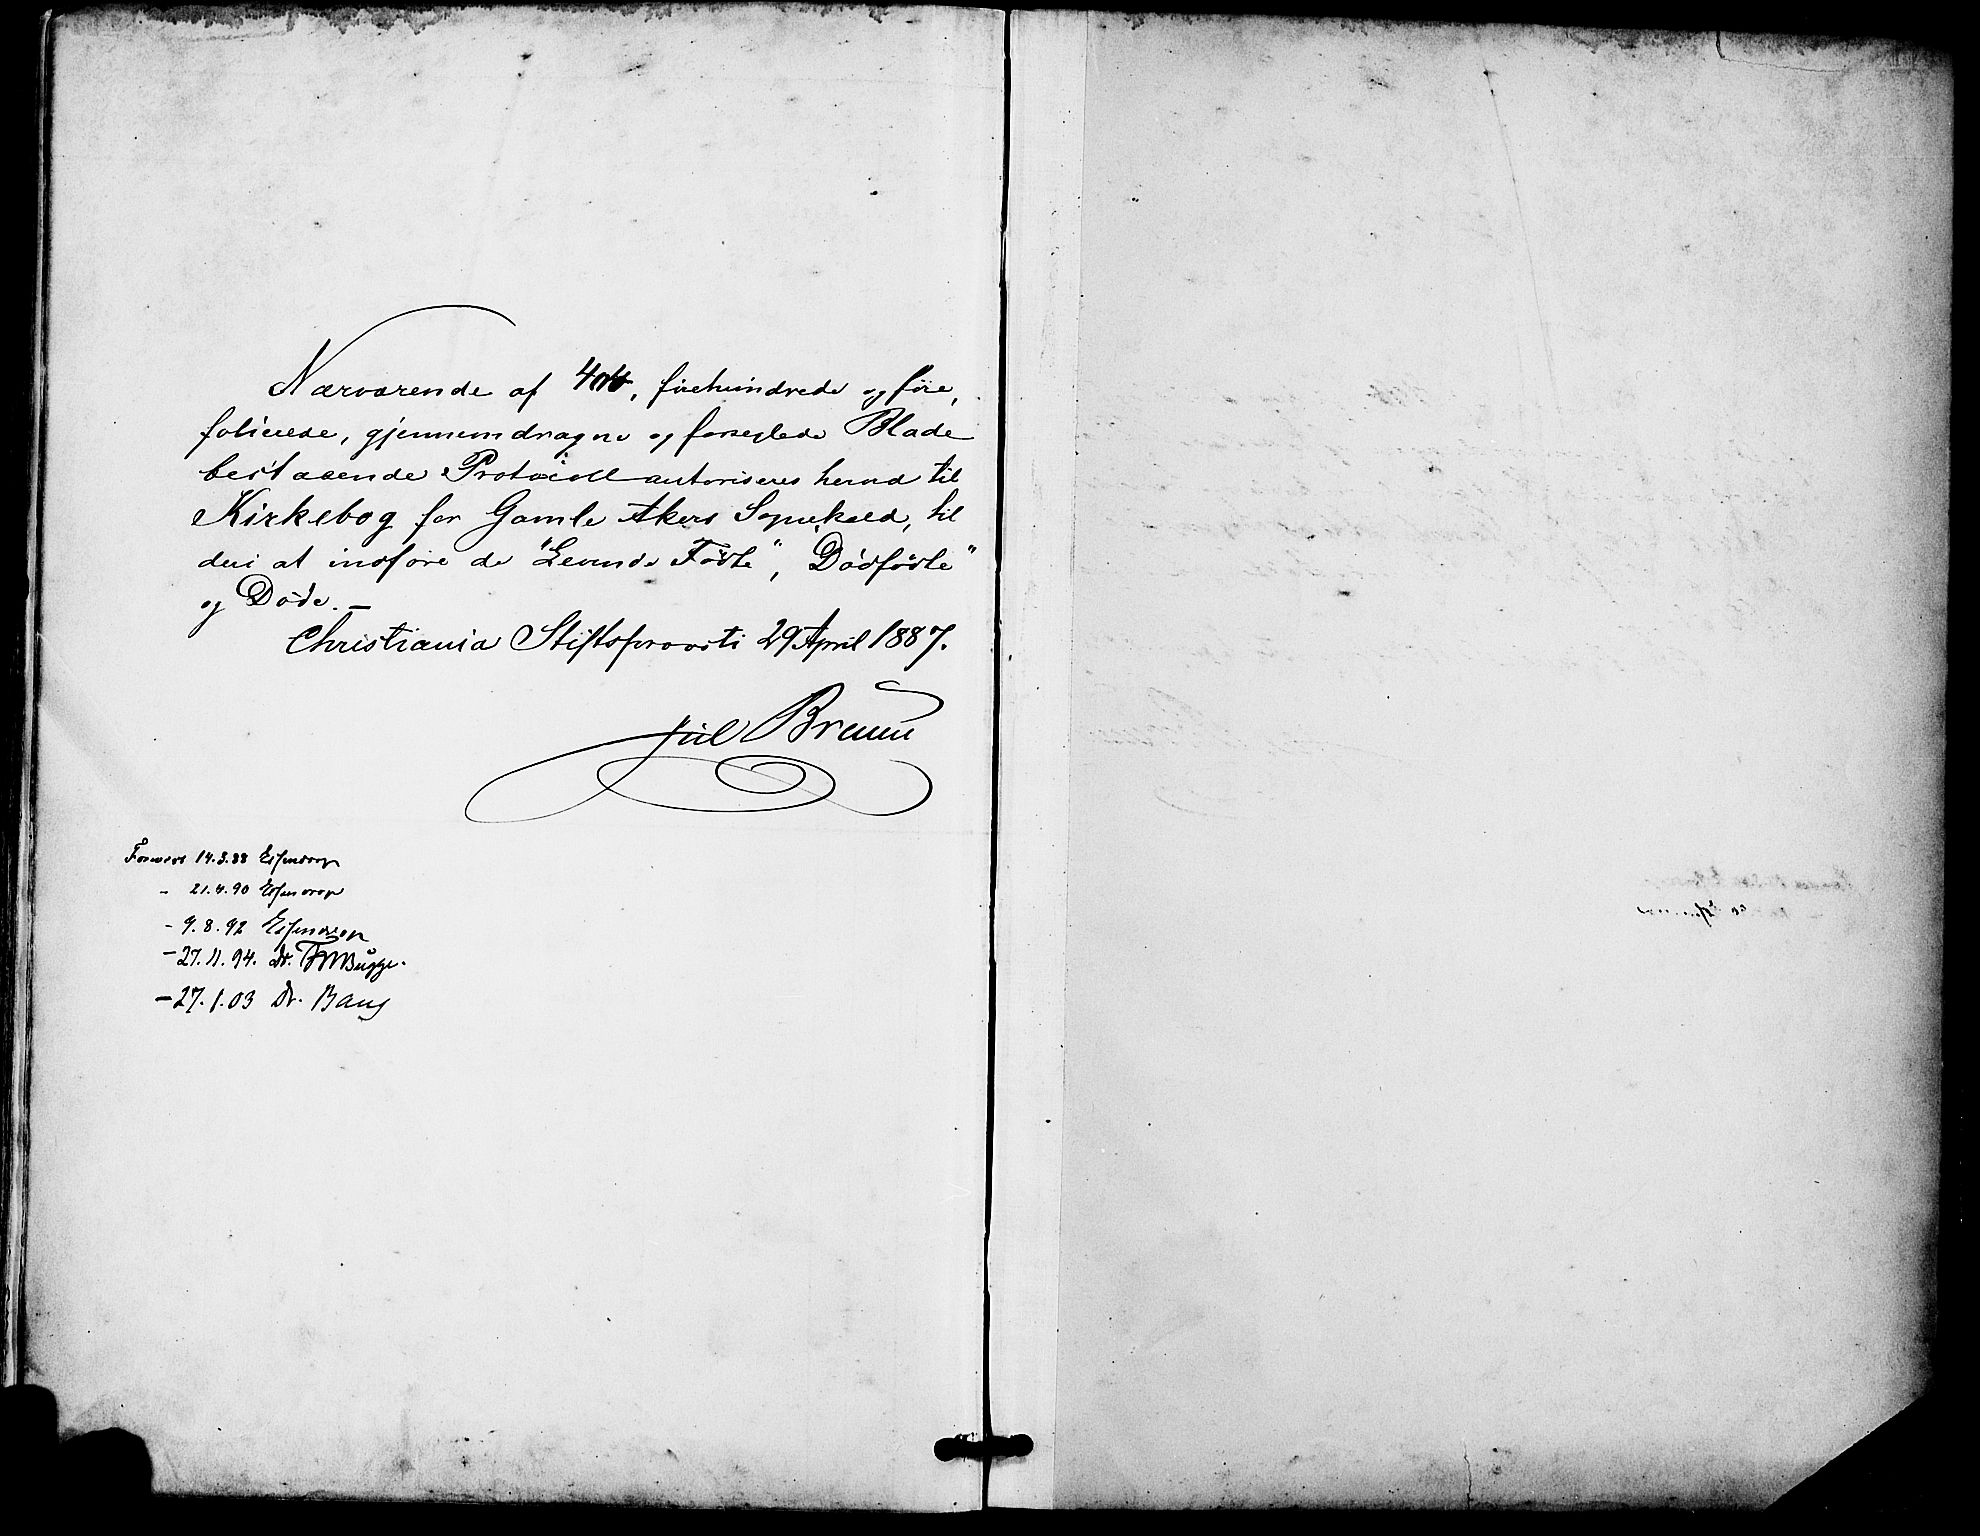 Nærværende af 404, firehundrede og fire,
folierede, gjennemdragne og forseglede Blade
bestaaende Protocoll autoriseres herved til
Kirkebog for Gamle Akers Sognekald, til
deri at indføre de "Levende Fødte", "Dødfødte"
og Døde. —
Christiania Stiftsprovsti 29 April 1887.
Jul Bruun
Forevist 14.3.88 Essendrop
- 21.4.90 Essendrop
- 9.8.92 Essendrop
- 27.11.94. Dr. FWBugge.
- 27.1.03 Dr. Bang